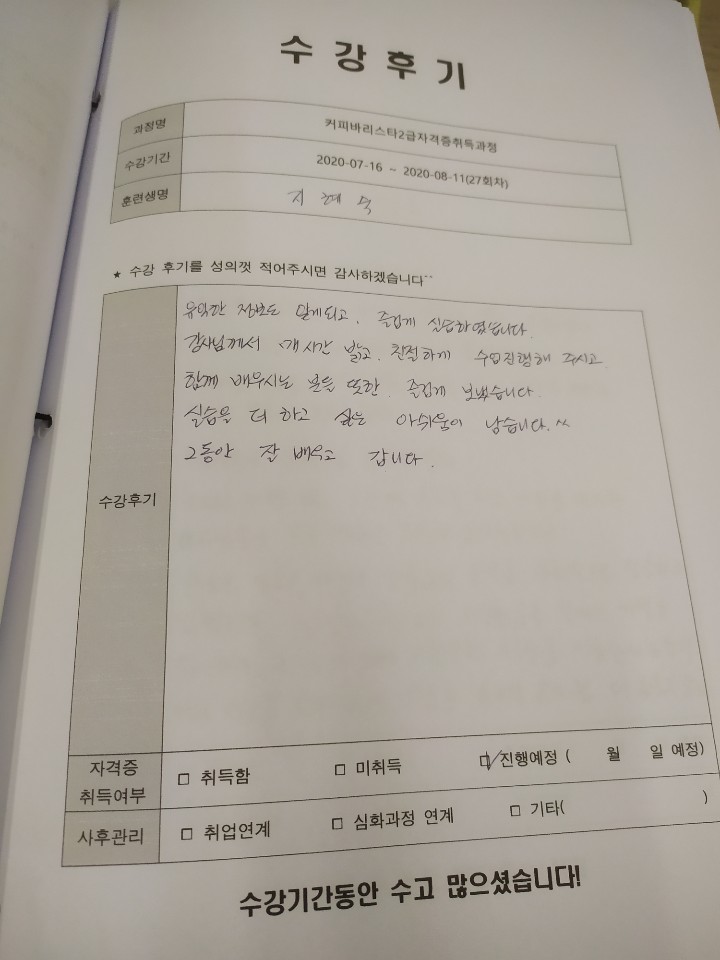 수강후기
과정명 커피바리스타2급자격증취득과정
수강기간 2020-07-16 ~ 2020-08-11(27회차)
훈련생명 지혜숙
★ 수강 후기를 성의껏 적어주시면 감사하겠습니다^^
유익한 정보도 알게되고, 즐겁게 실습하였습니다.
강사님께서 매시간 밝고, 친절하게 수업진행해 주시고
함께 배우시는 분들 또한 즐겁게 보냈습니다.
실습을 더 하고 싶은 아쉬움이 남습니다.^^
그동안 잘 배우고 갑니다.
수강후기
자격증 취득여부 □ 취득함 □ 미취득 ☑ 진행예정 ( 월 일 예정)
사후관리 □ 취업연계 □ 심화과정 연계 □ 기타( )
수강기간동안 수고 많으셨습니다!